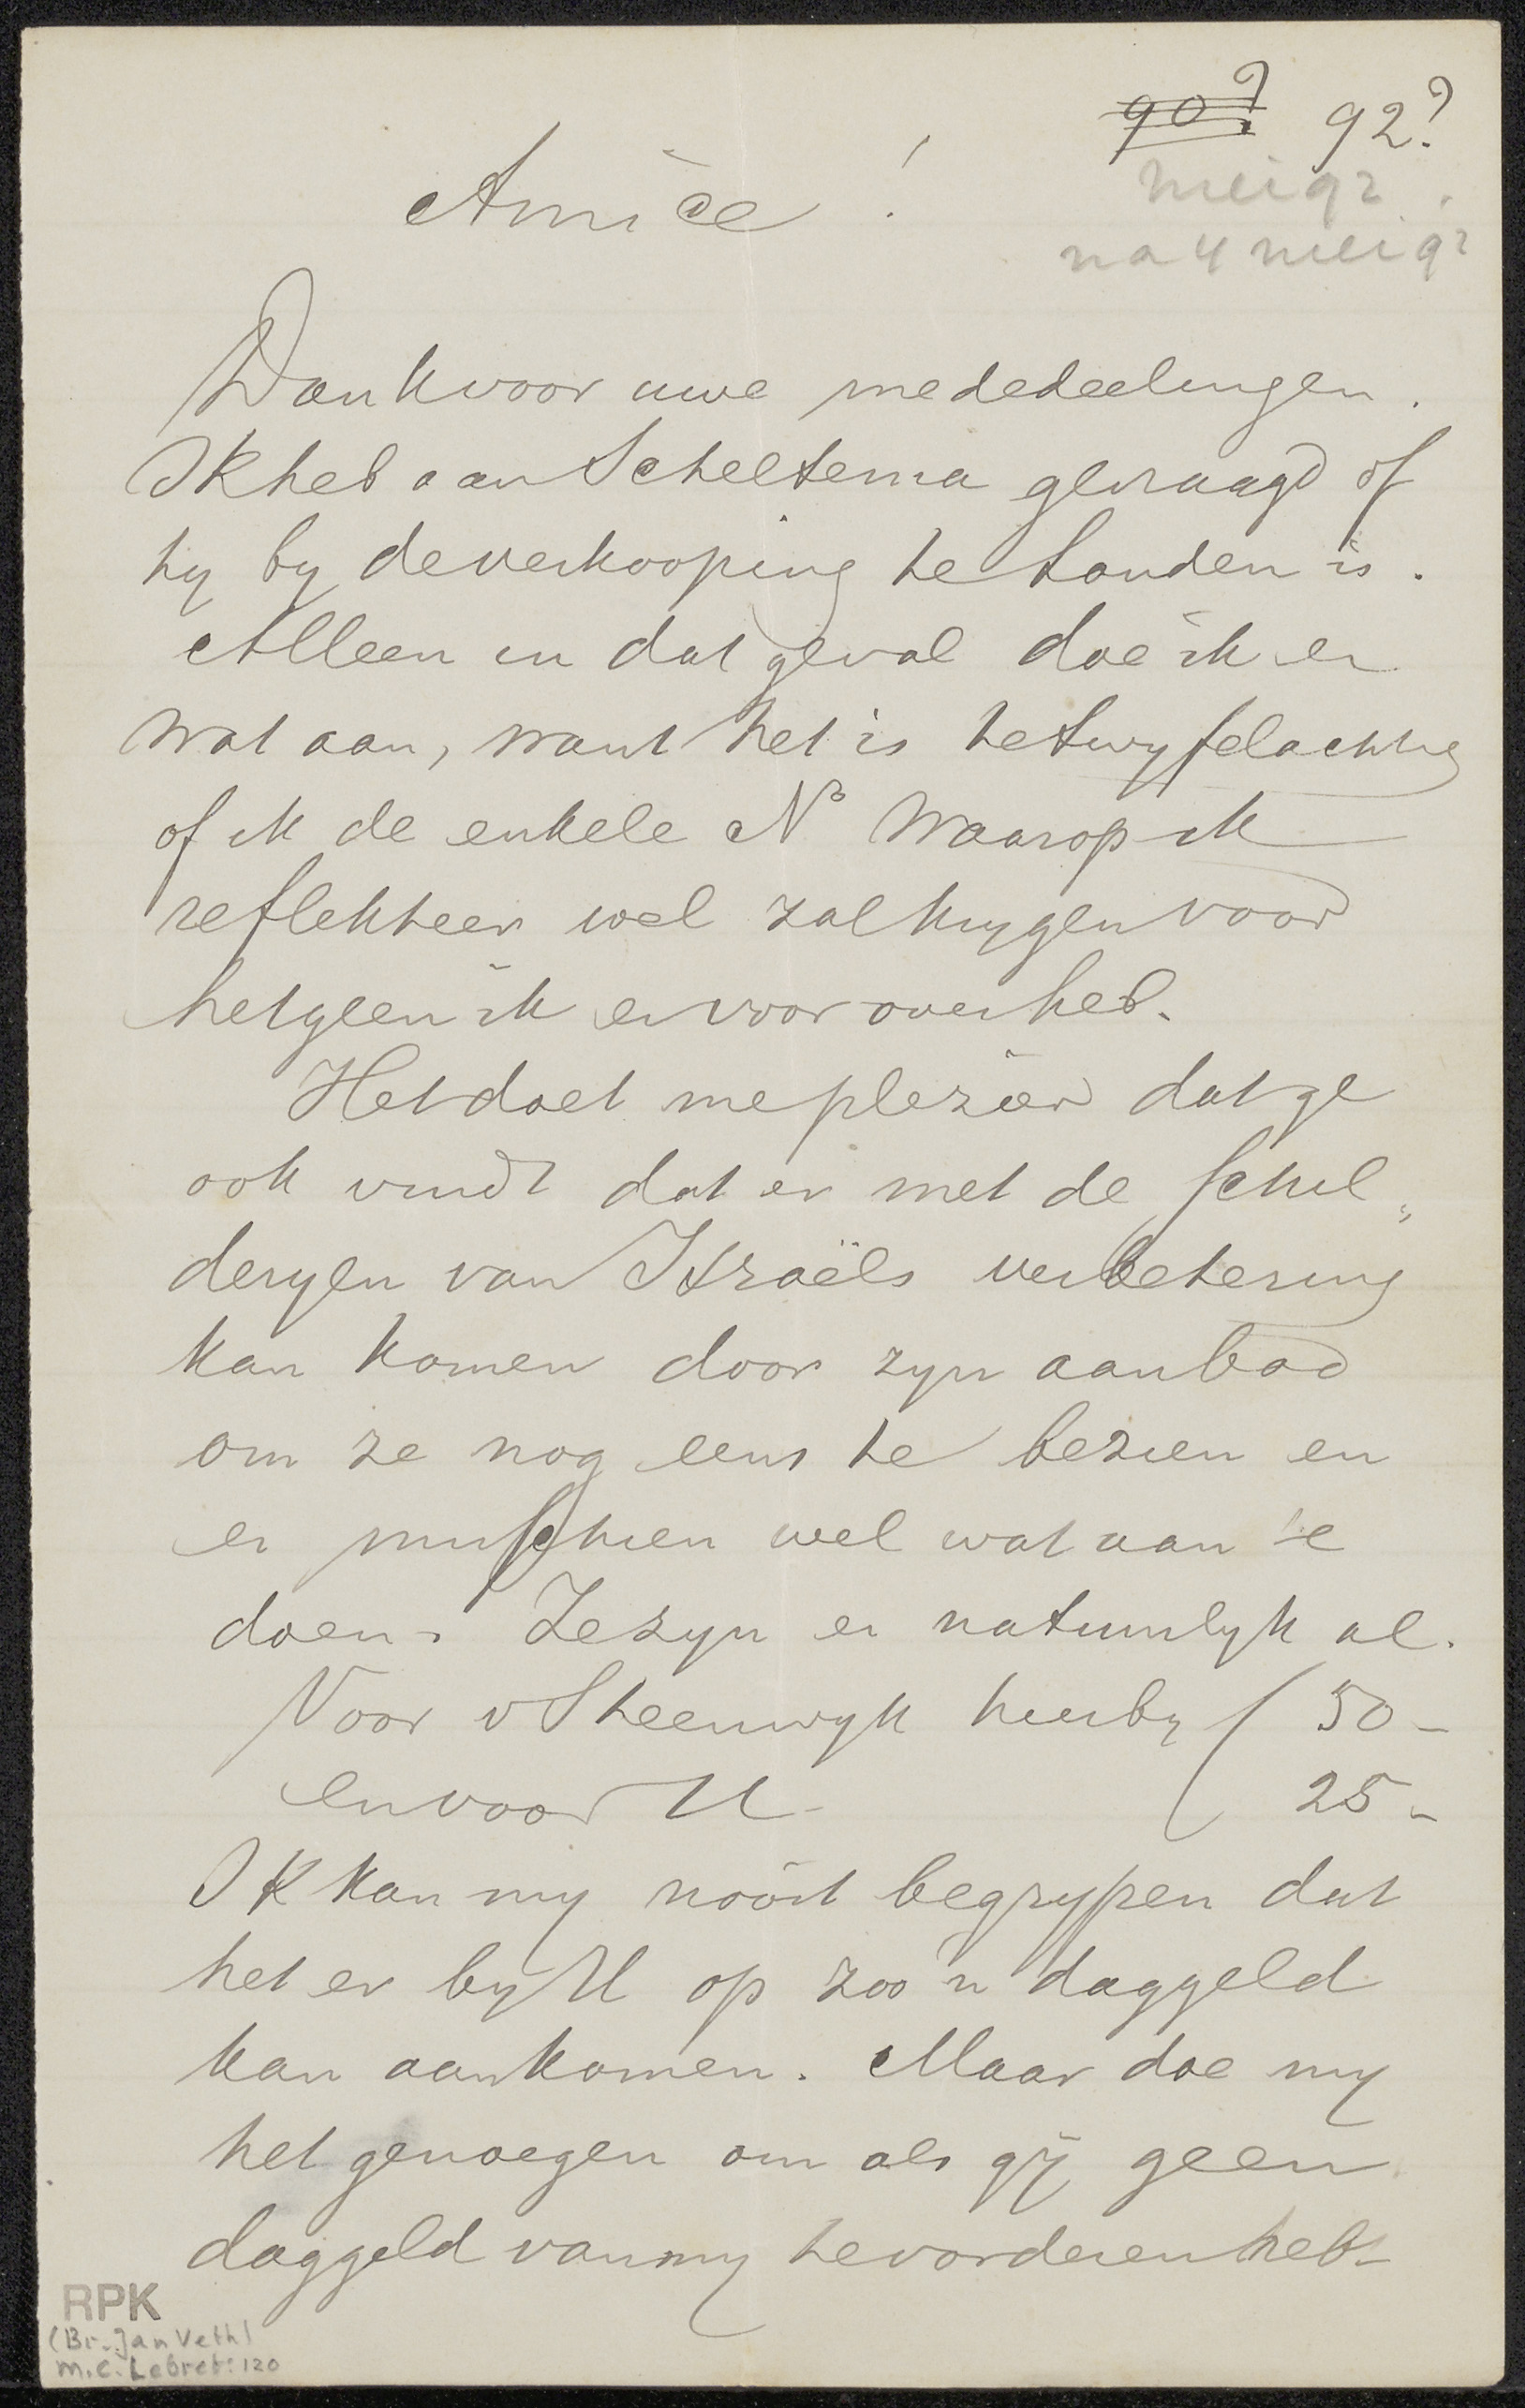 90? 92?
mei 92.
na 4 mei 92
Amice!
Dank voor uwe mededeelingen.
Ik heb aan Scheltema gevraagd of
hy by de verkooping te Londen is.
Alleen in dat geval doe ik er
wat aan, want het is te twyfelachtig
of ik de enkele No waarop ik
reflekteer wel zal krygen voor
hetgeen ik er voor over heb.
Het doet me plezier dat ge
ook vindt dat er met de schil„
deryen van Israëls verbetering
kan komen door zyn aanbod
om ze nog eens te bezien en
er misschien wel wat aan te
doen. Ze zyn er natuurlyk al.
Voor v Steenwyk hierby f 50 -
en voor U - f 25 -
Ik kan my nooit begrypen dat
het er by U op zoo'n daggeld
kan aankomen. Maar doe my
het genoegen om als gÿ geen
daggeld van my te vorderen heb-
RPK
(Br. Jan Veth)
M.C. Lebret: 120